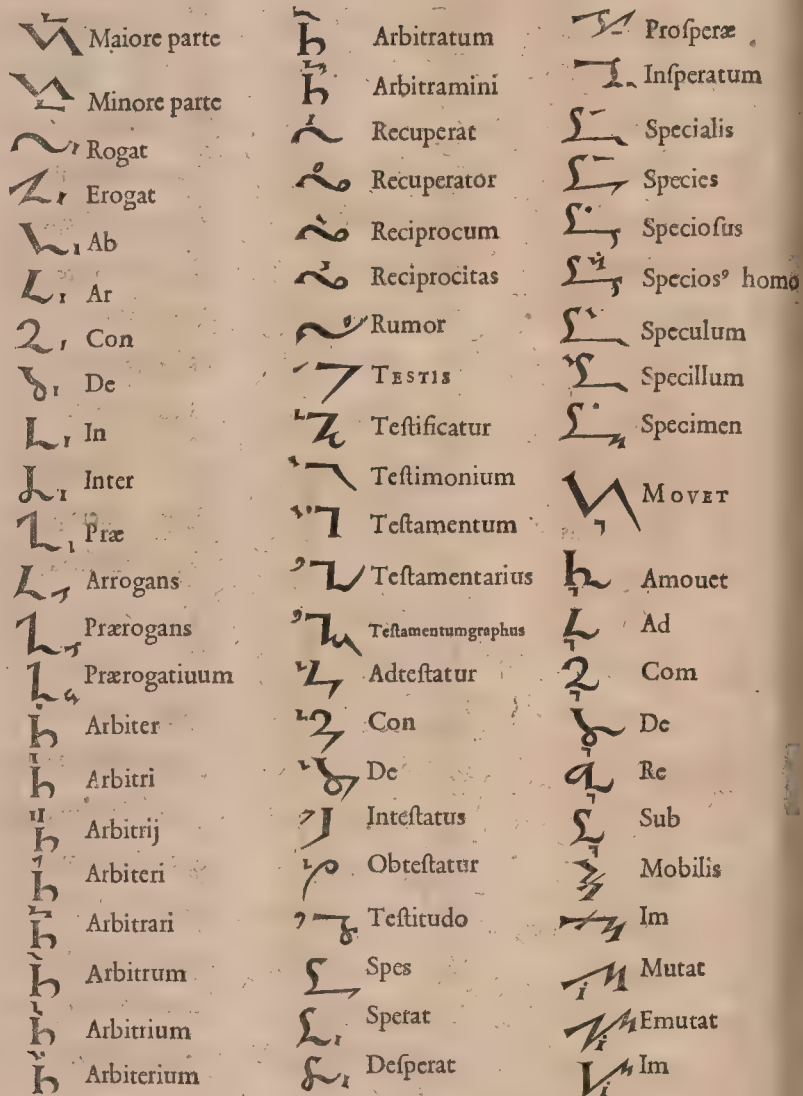 Maiore parte
Minore parte
Rogat
Erogat
Ab
Ar
Con
De
In
Inter
Præ
Arrogans
Prærogans
Prærogatiuum
Arbiter
Arbitri
Arbitrij
Arbiteri
Arbitrari
Arbitrum
Arbitrium
Arbiterium
Arbitratum
Arbitramini
Recuperat
Recuperator
Reciprocum
Reciprocitas
Rumor
TESTIS
Teſtificatur
Teſtimonium
Teſtamentum
Teſtamentarius
Teſtamentumgraphus
Adteſtatur
Con
De
Inteſtatus
Obteſtatur
Teſtitudo
Spes
Sperat
Deſperat
Proſperæ
Inſperatum
Specialis
Species
Specioſus
Specios⁹ homo
Speculum
Specillum
Specimen
MOVET
Amouet
Ad
Com
De
Re
Sub
Mobilis
Im
Mutat
Emutat
Im